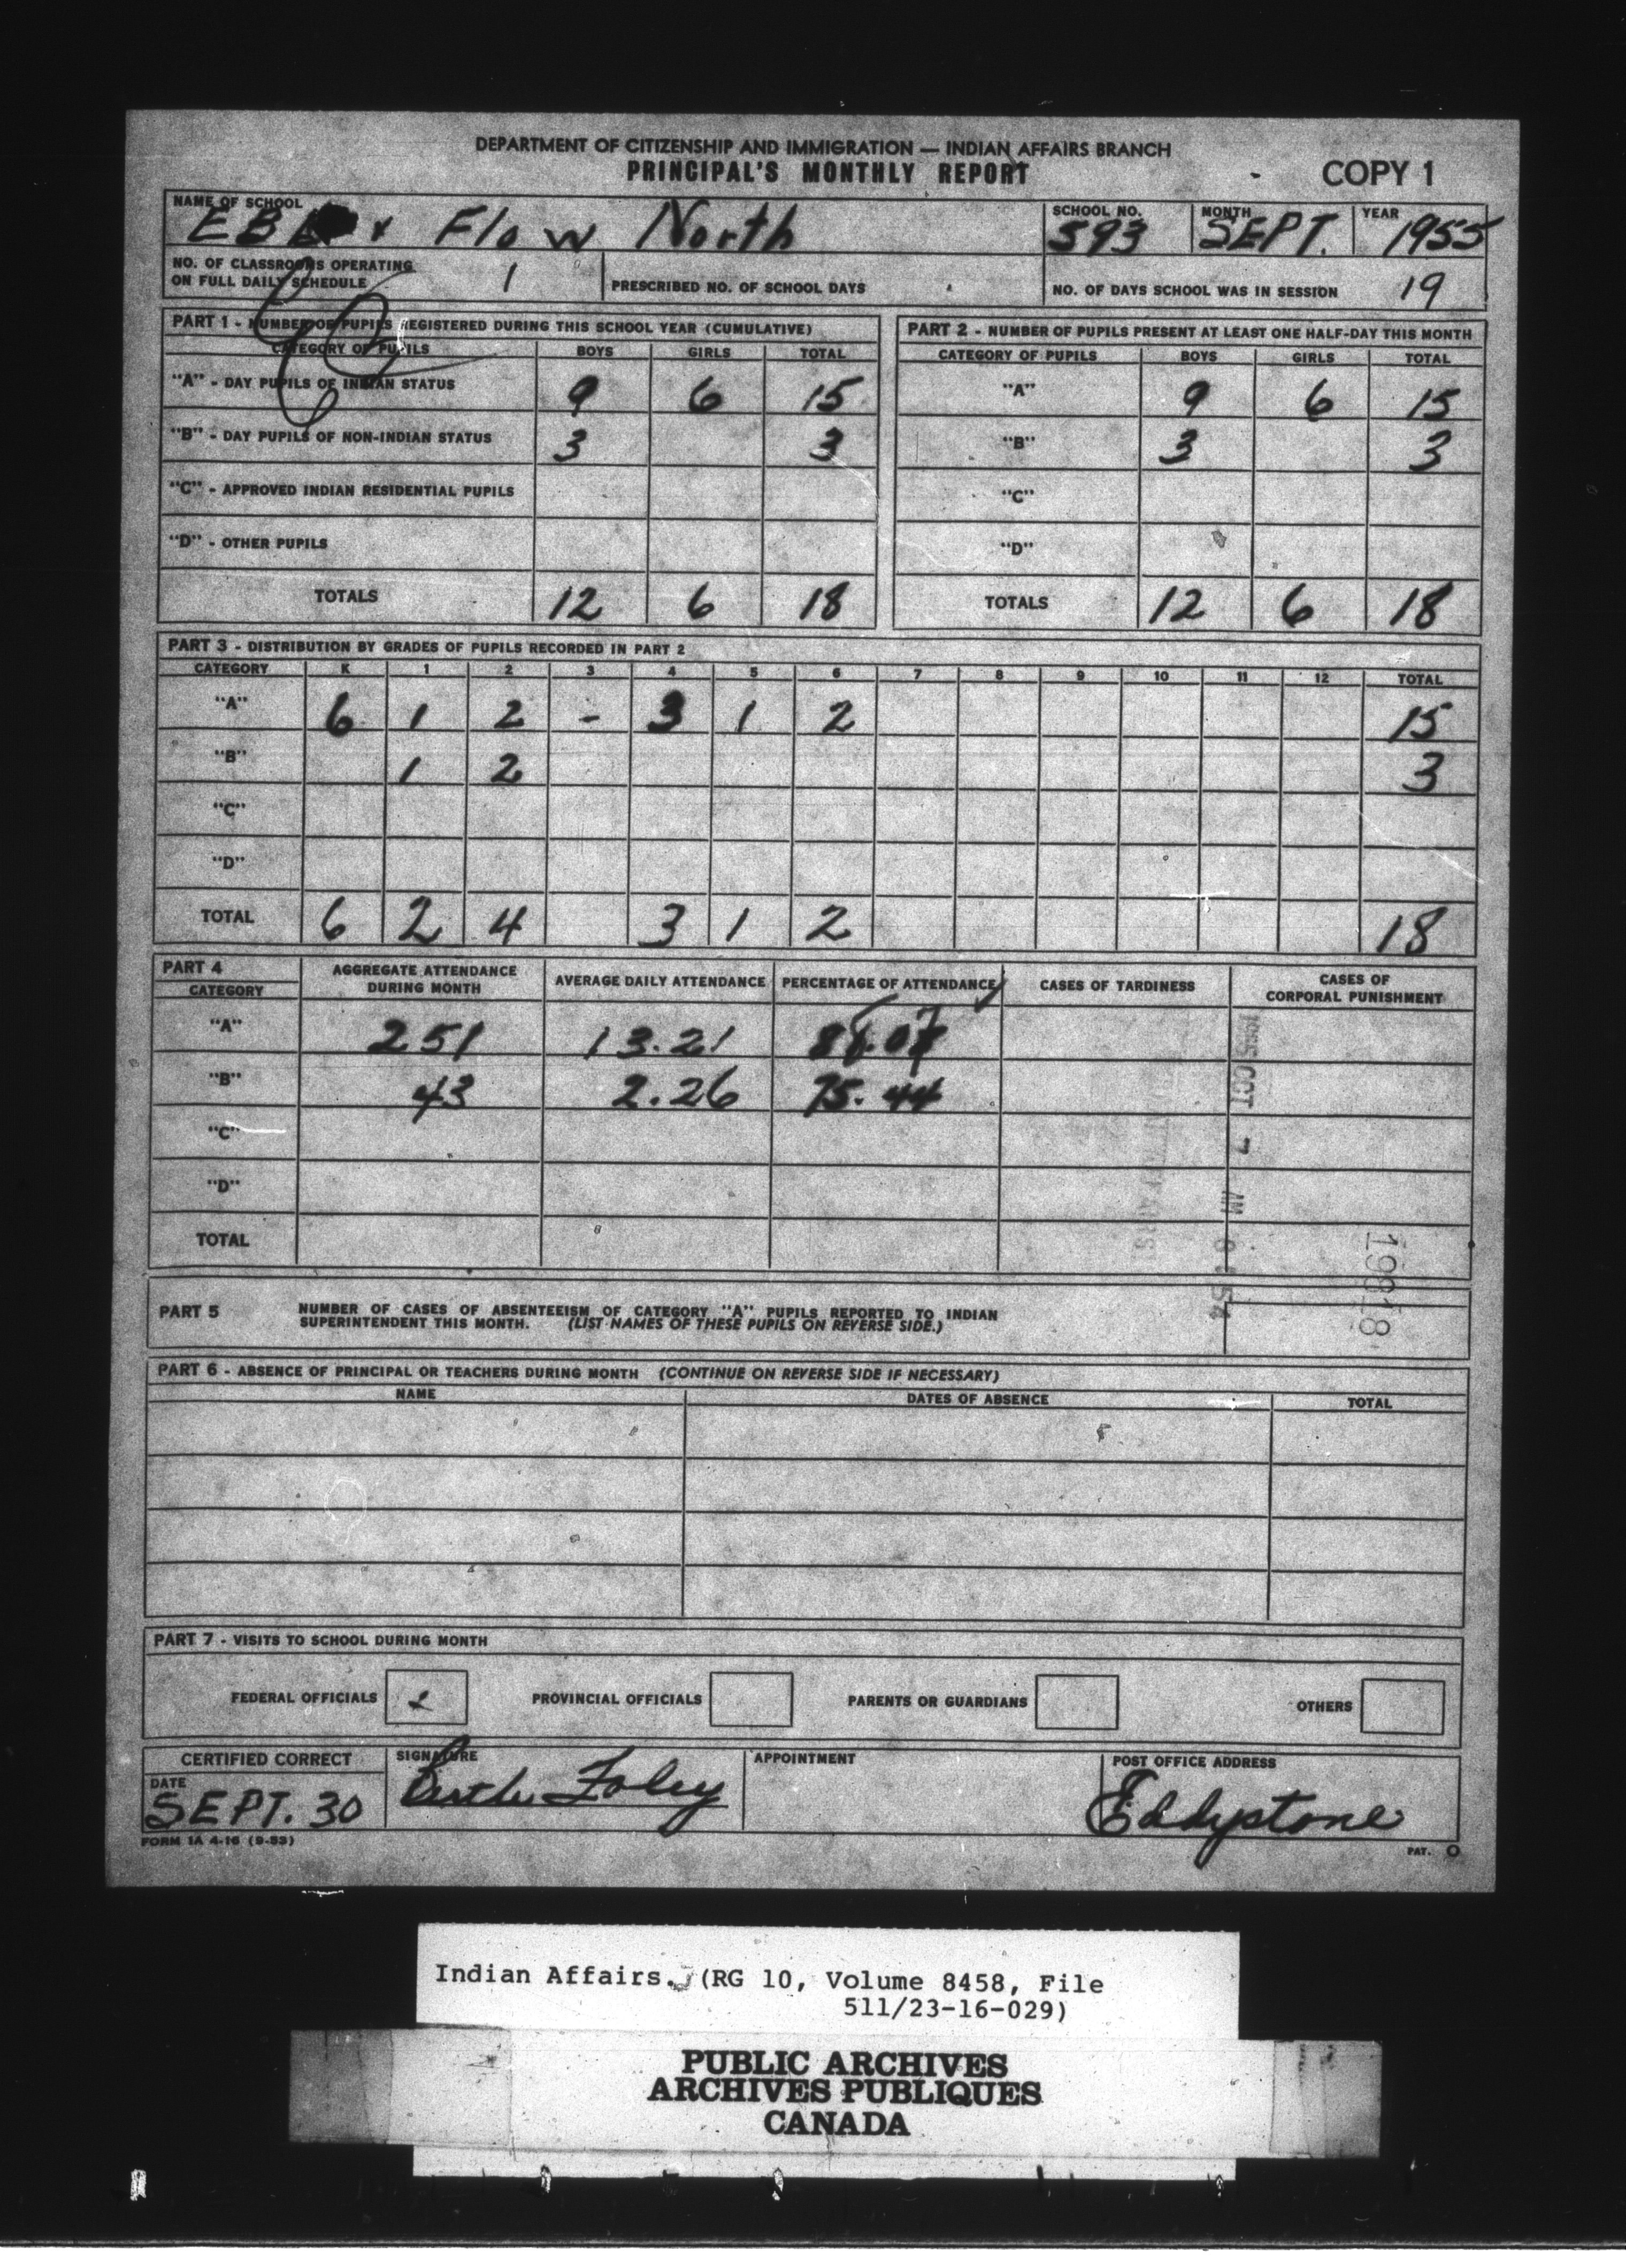 DEPARTMENT OF CITIZENSHIP AND IMMIGRATION — INDIAN AFFAIRS BRANCH
PRINCIPAL'S MONTHLY REPORT
COPY 1
NAME OF SCHOOL EBB & Flow North
SCHOOL NO. 593
MONTH SEPT.
YEAR 1955
NO. OF CLASSROOMS OPERATING ON FULL DAILY SCHEDULE 1
PRESCRIBED NO. OF SCHOOL DAYS
NO. OF DAYS SCHOOL WAS IN SESSION 19
PART 1 - NUMBER OF PUPILS REGISTERED DURING THIS SCHOOL YEAR (CUMULATIVE)
CATEGORY OF PUPILS BOYS GIRLS TOTAL
"A" - DAY PUPILS OF INDIAN STATUS 9 6 15
"B" - DAY PUPILS OF NON-INDIAN STATUS 3 3
"C" - APPROVED INDIAN RESIDENTIAL PUPILS
"D" - OTHER PUPILS
TOTALS 12 6 18
PART 2 - NUMBER OF PUPILS PRESENT AT LEAST ONE HALF-DAY THIS MONTH
CATEGORY OF PUPILS BOYS GIRLS TOTAL
"A" 9 6 15
"B" 3 3
"C"
"D"
TOTALS 12 6 18
PART 3 - DISTRIBUTION BY GRADES OF PUPILS RECORDED IN PART 2
CATEGORY K 1 2 3 4 5 6 7 8 9 10 11 12 TOTAL
"A" 6 1 2 - 3 1 2 15
"B" 1 2 3
"C"
"D"
TOTAL 6 2 4 3 1 2 18
PART 4
CATEGORY AGGREGATE ATTENDANCE DURING MONTH AVERAGE DAILY ATTENDANCE PERCENTAGE OF ATTENDANCE CASES OF TARDINESS CASES OF CORPORAL PUNISHMENT
"A" 251 13.21 88.07
"B" 43 2.26 75.44
"C"
"D"
TOTAL
1955 OCT 7 AM
PART 5 NUMBER OF CASES OF ABSENTEEISM OF CATEGORY "A" PUPILS REPORTED TO INDIAN
SUPERINTENDENT THIS MONTH. (LIST NAMES OF THESE PUPILS ON REVERSE SIDE.)
PART 6 - ABSENCE OF PRINCIPAL OR TEACHERS DURING MONTH (CONTINUE ON REVERSE SIDE IF NECESSARY)
NAME DATES OF ABSENCE TOTAL
PART 7 - VISITS TO SCHOOL DURING MONTH
FEDERAL OFFICIALS PROVINCIAL OFFICIALS PARENTS OR GUARDIANS OTHERS
CERTIFIED CORRECT
DATE SEPT. 30
SIGNATURE Foley
APPOINTMENT
POST OFFICE ADDRESS Eddystone
FORM 1A 4-16 (9-53)
PAT.
Indian Affairs. (RG 10, Volume 8458, File
511/23-16-029)
PUBLIC ARCHIVES
ARCHIVES PUBLIQUES
CANADA